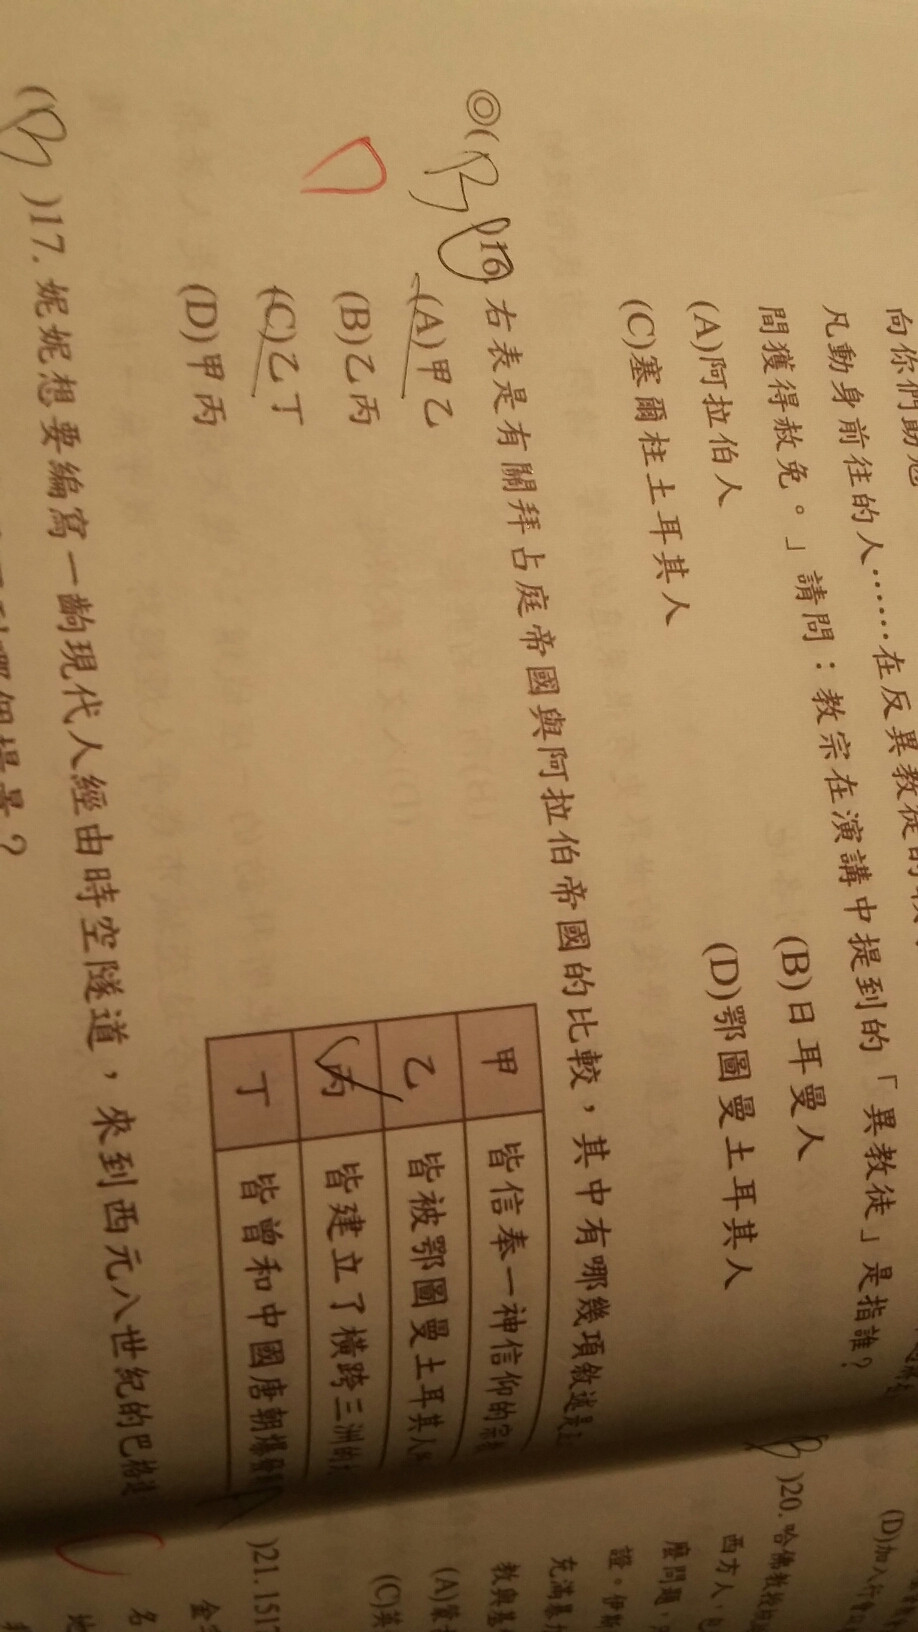 向你們勸
凡動身前往的人……在反異教徒的
間獲得赦免。」請問：教宗在演講中提到的「異教徒」是指誰？
(A)阿拉伯人 (B)日耳曼人
(C)塞爾柱土耳其人 (D)鄂圖曼土耳其人
◎( B )16. 右表是有關拜占庭帝國與阿拉伯帝國的比較，其中有哪幾項敘述是
(A)甲乙
(B)乙丙
(C)乙丁
(D)甲丙
甲 皆信奉一神信仰的宗
乙 皆被鄂圖曼土耳其人
丙 皆建立了橫跨三洲的
丁 皆曾和中國唐朝爆發
( B )17. 妮妮想要編寫一齣現代人經由時空隧道，來到西元八世紀的巴格達
哪個場景？
(D)加入行會
)20. 哈佛教授
西方人，
麼問題，
證。伊斯
充滿暴
教與基
(A)
(C)英
)21. 151
金
名
地